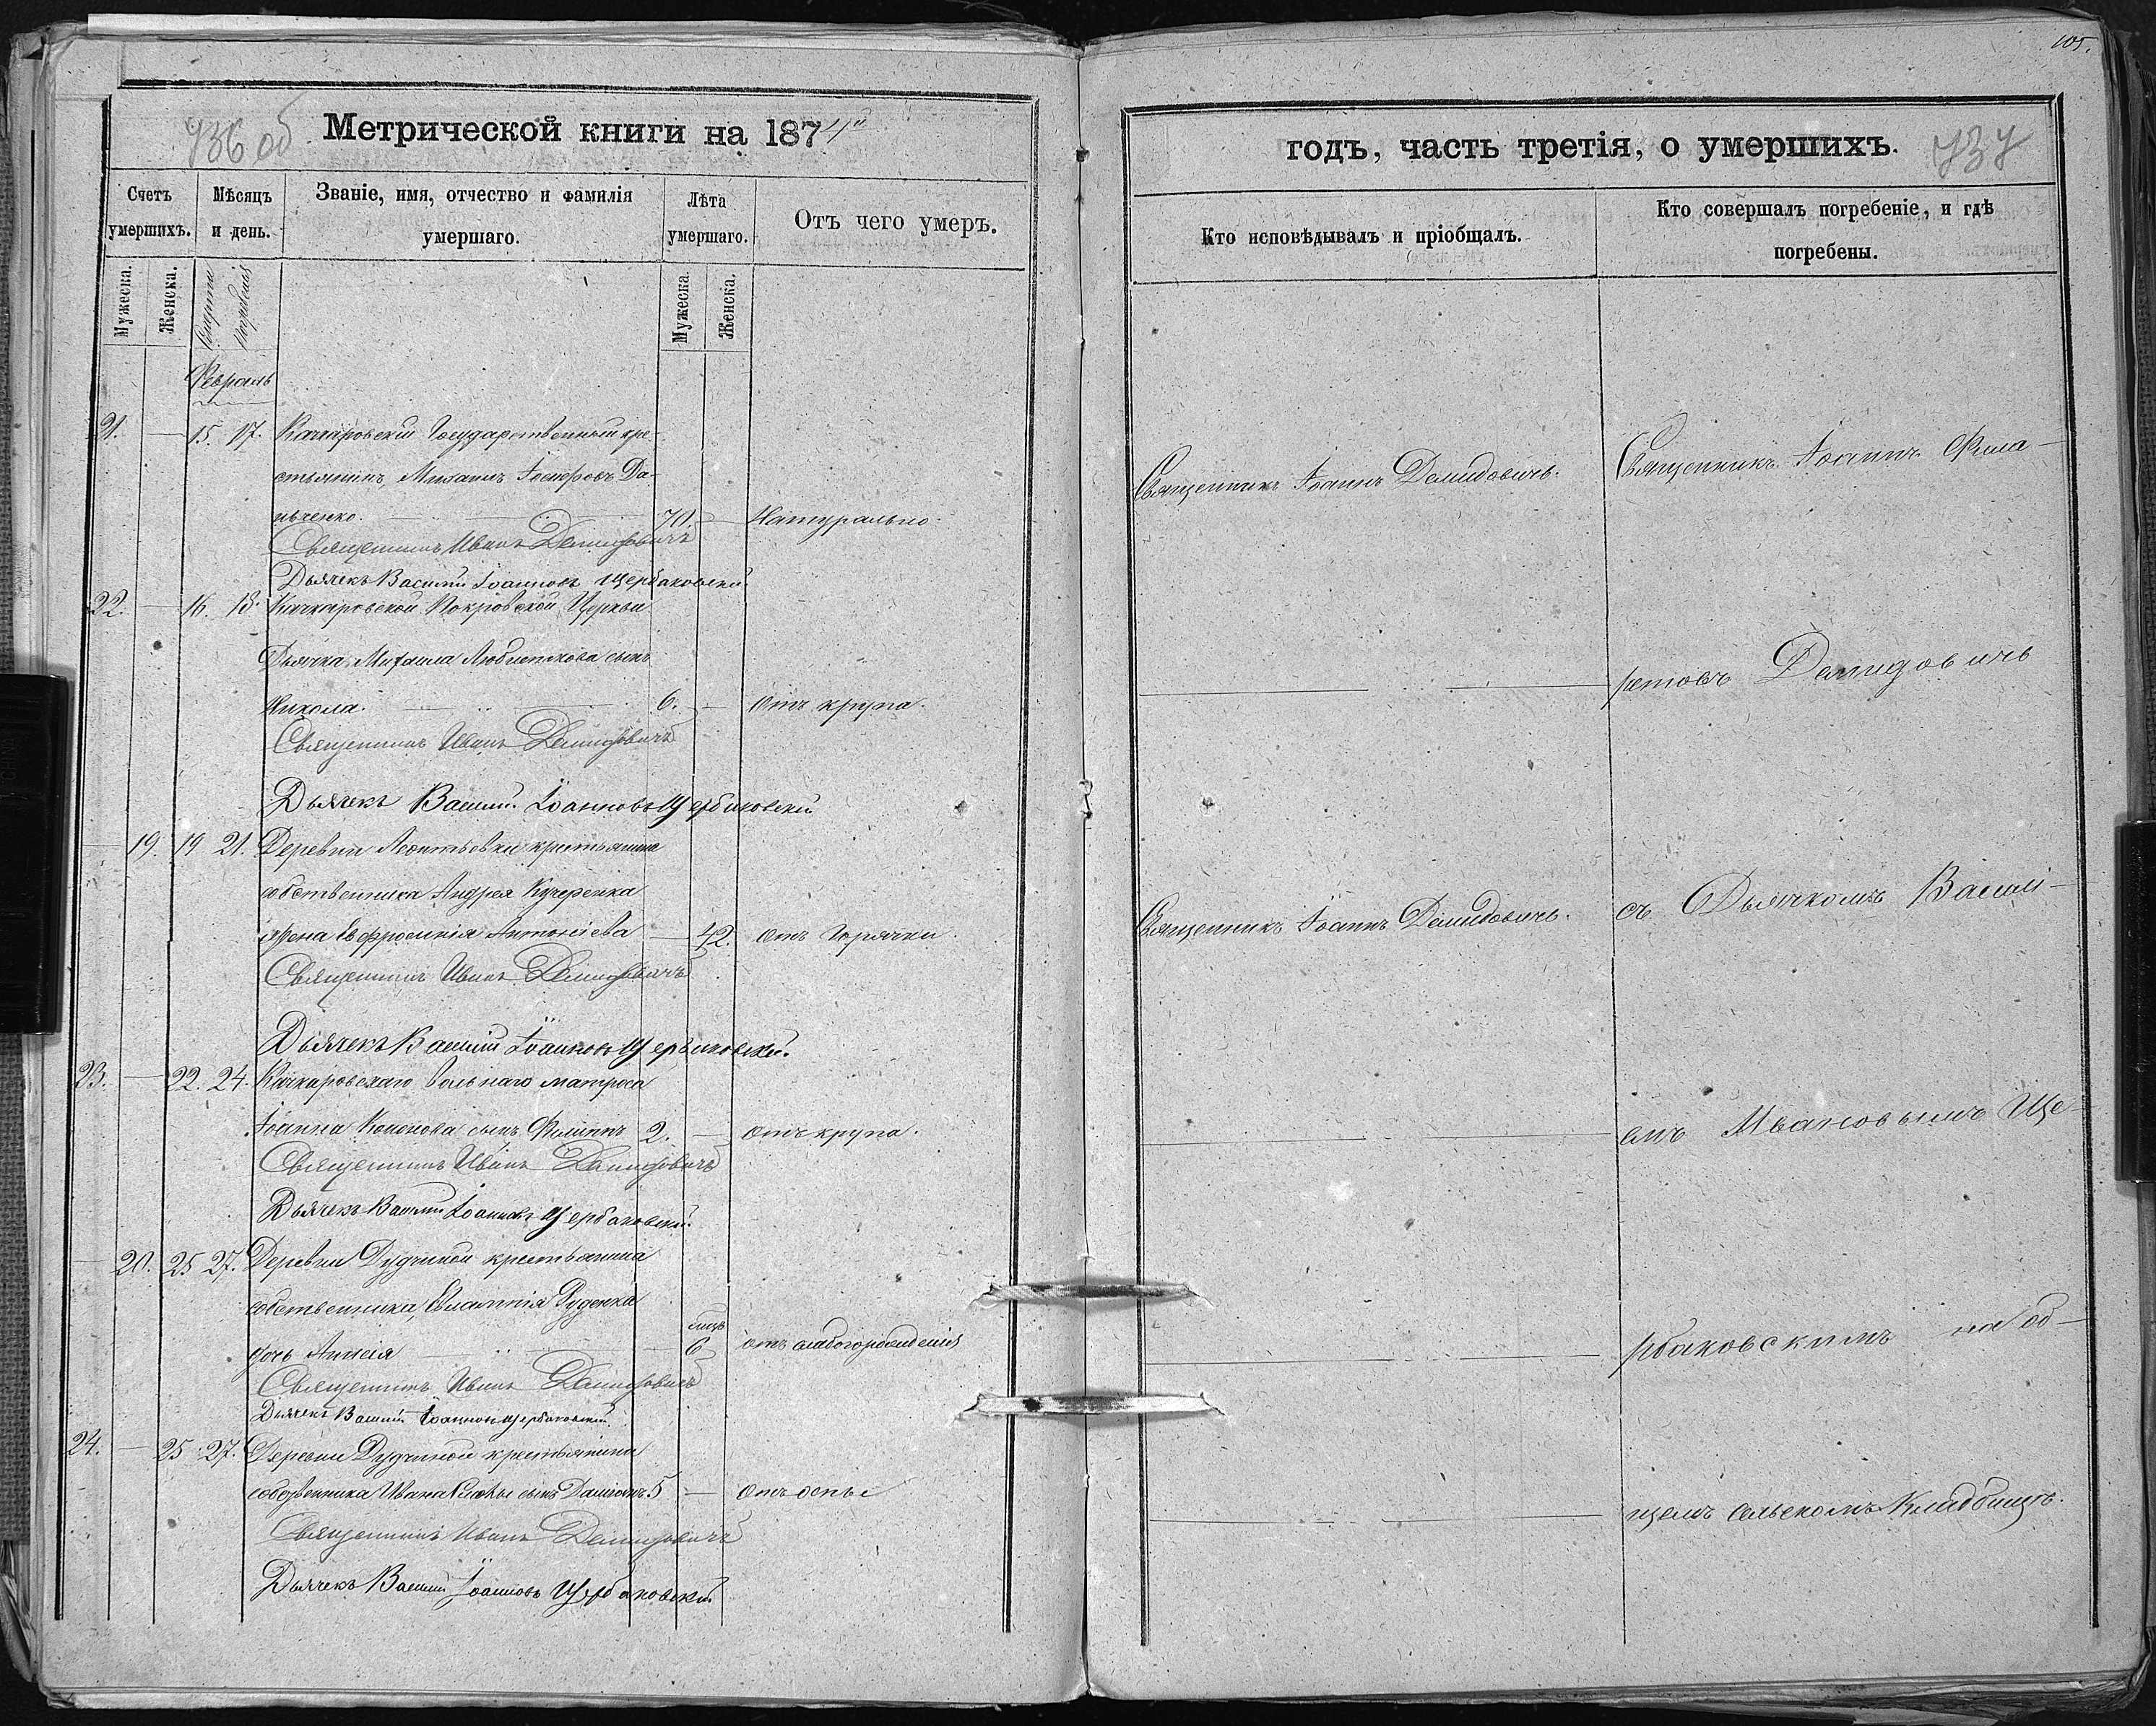 736 об
Метрической книги на 1874й
Счетъ умершихъ.
Мѣсяцъ и день.
Званіе, имя, отчество и фамилія умершаго.
Лѣта умершаго.
Отъ чего умеръ.
Мужеска.
Женска.
Смерти
Погребенія
Мужеска.
Женска.
Февраль
21. — 15. 17. Качкаровскій Государственный кре-
стьянинъ, Михаилъ Іосифовъ Да-
ньченко. 70. — Натурально.
Священникъ Иванъ Демидовичъ
Дьячекъ Василій Іоанновъ Щербаковскій.
22. — 16. 18. Качкаровской Покровской Церкви
Дьячка Михаила Любисткова сынъ
Никола. 6. — Отъ крупа.
Священникъ Иванъ Демидовичъ
Дьячекъ Василій Іоанновъ Щербаковскій
— 19. 19 21. Деревни Леонтьевки крестьянина
собственника Андрея Кучеренка
жена Евфросинія Антоніева — 42. отъ Горячки.
Священникъ Иванъ Демидовичъ
Дьячекъ Василій Іоанновъ Щербаковскій.
23. — 22. 24. Качкаровскаго вольнаго матроса
Іоанна Кононова сынъ Филиппъ 2. — отъ крупа.
Священникъ Иванъ Демидовичъ
Дьячекъ Василій Іоанновъ Щербаковскій.
— 20. 25 27. Деревни Дудчиной крестьянина
собственника, Евлампія Руденка
дочь Анисія — 6 отъ слабогорожденія
Священникъ Иванъ Демидовичъ
Дьячекъ Василій Іоанновъ Щербаковскій.
24. — 25 27. Деревни Дудчиной крестьянина
собственника Ивана сынъ Даміанъ 5 — Отъ оспы
Священникъ Иванъ Демидовичъ
Дьячекъ Василій Іоанновъ Щербаковскій
105.
годъ, часть третія, о умершихъ.
737
Кто исповѣдывалъ и пріобщалъ.
Кто совершалъ погребеніе, и гдѣ погребены.
Священникъ Іоаннъ Демидовичъ.
Священникъ Іоаннъ Демидовичъ.
Священникъ Іоаннъ Фила-
ретовъ Демидовичъ
съ Дьячкомъ Василі-
емъ Ивановымъ Ще-
рбаковскимъ на об-
щемъ сельскомъ Кладбищѣ.